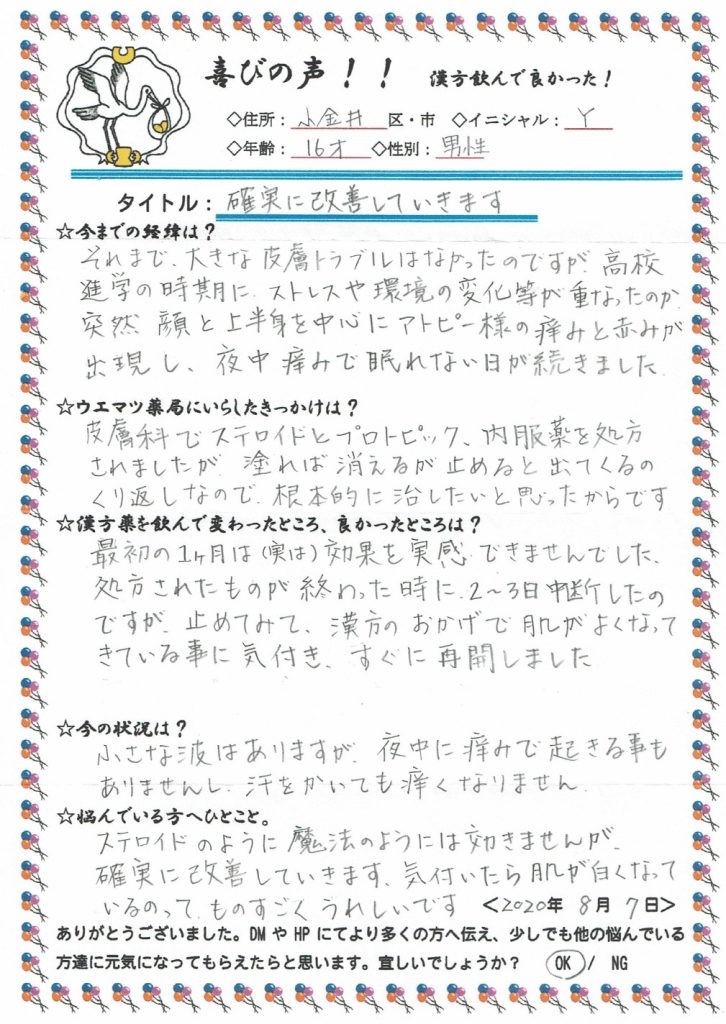 喜びの声！！ 漢方飲んで良かった！
◇住所：小金井 区・市 ◇イニシャル：Y
◇年齢：16才 ◇性別：男性
タイトル：確実に改善していきます
☆今までの経緯は？
それまで、大きな皮膚トラブルはなかったのですが、高校
進学の時期に、ストレスや環境の変化等が重なったのか、
突然 顔と上半身を中心にアトピー様の痒みと赤みが
出現し、夜中 痒みで眠れない日が続きました。
☆ウエマツ薬局にいらしたきっかけは？
皮膚科でステロイドとプロトピック、内服薬を処方
されましたが、塗れば消えるが止めると出てくるの
くり返しなので、根本的に治したいと思ったからです
☆漢方薬を飲んで変わったところ、良かったところは？
最初の1ヶ月は(実は)効果を実感できませんでした、
処方されたものが終わった時に、2〜3日中断したの
ですが、止めてみて、漢方のおかげで肌がよくなって
きている事に気付き、すぐに再開しました
☆今の状況は？
小さな波はありますが、夜中に痒みで起きる事も
ありませんし、汗をかいても痒くなりません。
☆悩んでいる方へひとこと。
ステロイドのように魔法のようには効きませんが、
確実に改善していきます、気付いたら肌が白くなって
いるのって、ものすごくうれしいです <2020年 8月 7日>
ありがとうございました。DMやHPにてより多くの方へ伝え、少しでも他の悩んでいる
方達に元気になってもらえたらと思います。宜しいでしょうか？ OK / NG